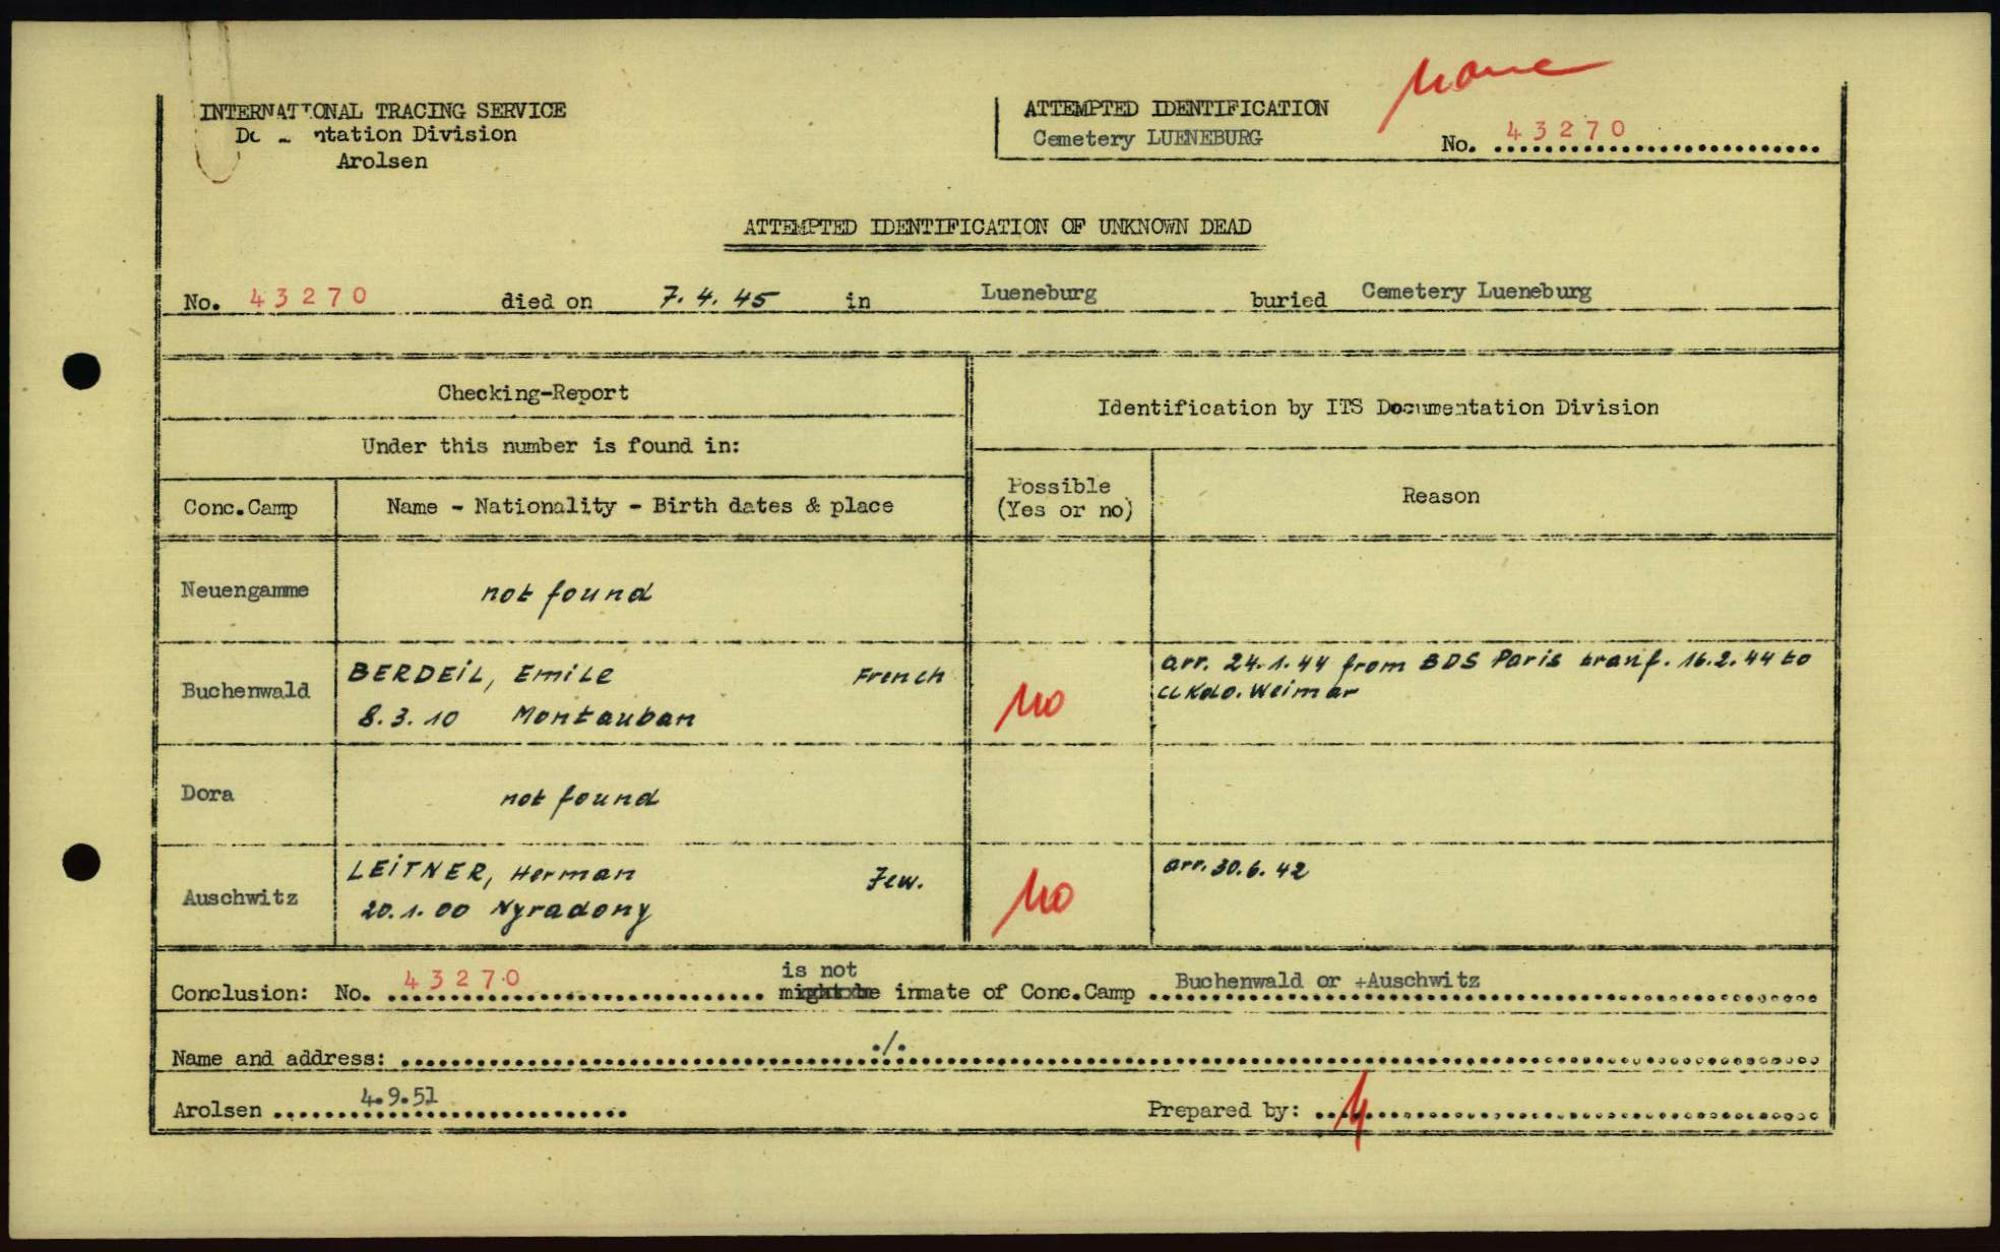 none
INTERNATIONAL TRACING SERVICE
ntation Division
Arolsen
ATTEMPTED IDENTIFICATION
Cemetery LUENEBURG
No. 43270
ATTEMPTED IDENTIFICATION OF UNKNOWN DEAD
No. 43270 died on 7.4.45 in Lueneburg buried Cemetery Lueneburg
Checking-Report
Identification by ITS Documentation Division
Under this number is found in:
Conc.Camp
Name - Nationality - Birth dates & place
Possible
(Yes or no)
Reason
Neuengamme
not found
Buchenwald
BERDEIL, Emile French
8.3.10 Montauban
no
arr. 24.1.44 from BDS Paris tranf. 16.2.44 to
Kdo. Weimar
Dora
not found
Auschwitz
LEITNER, Herman Jew.
20.1.00 Nyradony
no
arr. 30.6.42
is not
Conclusion: No. 43270 might be inmate of Conc.Camp Buchenwald or +Auschwitz
Name and address: ./.
Arolsen 4.9.51
Prepared by: